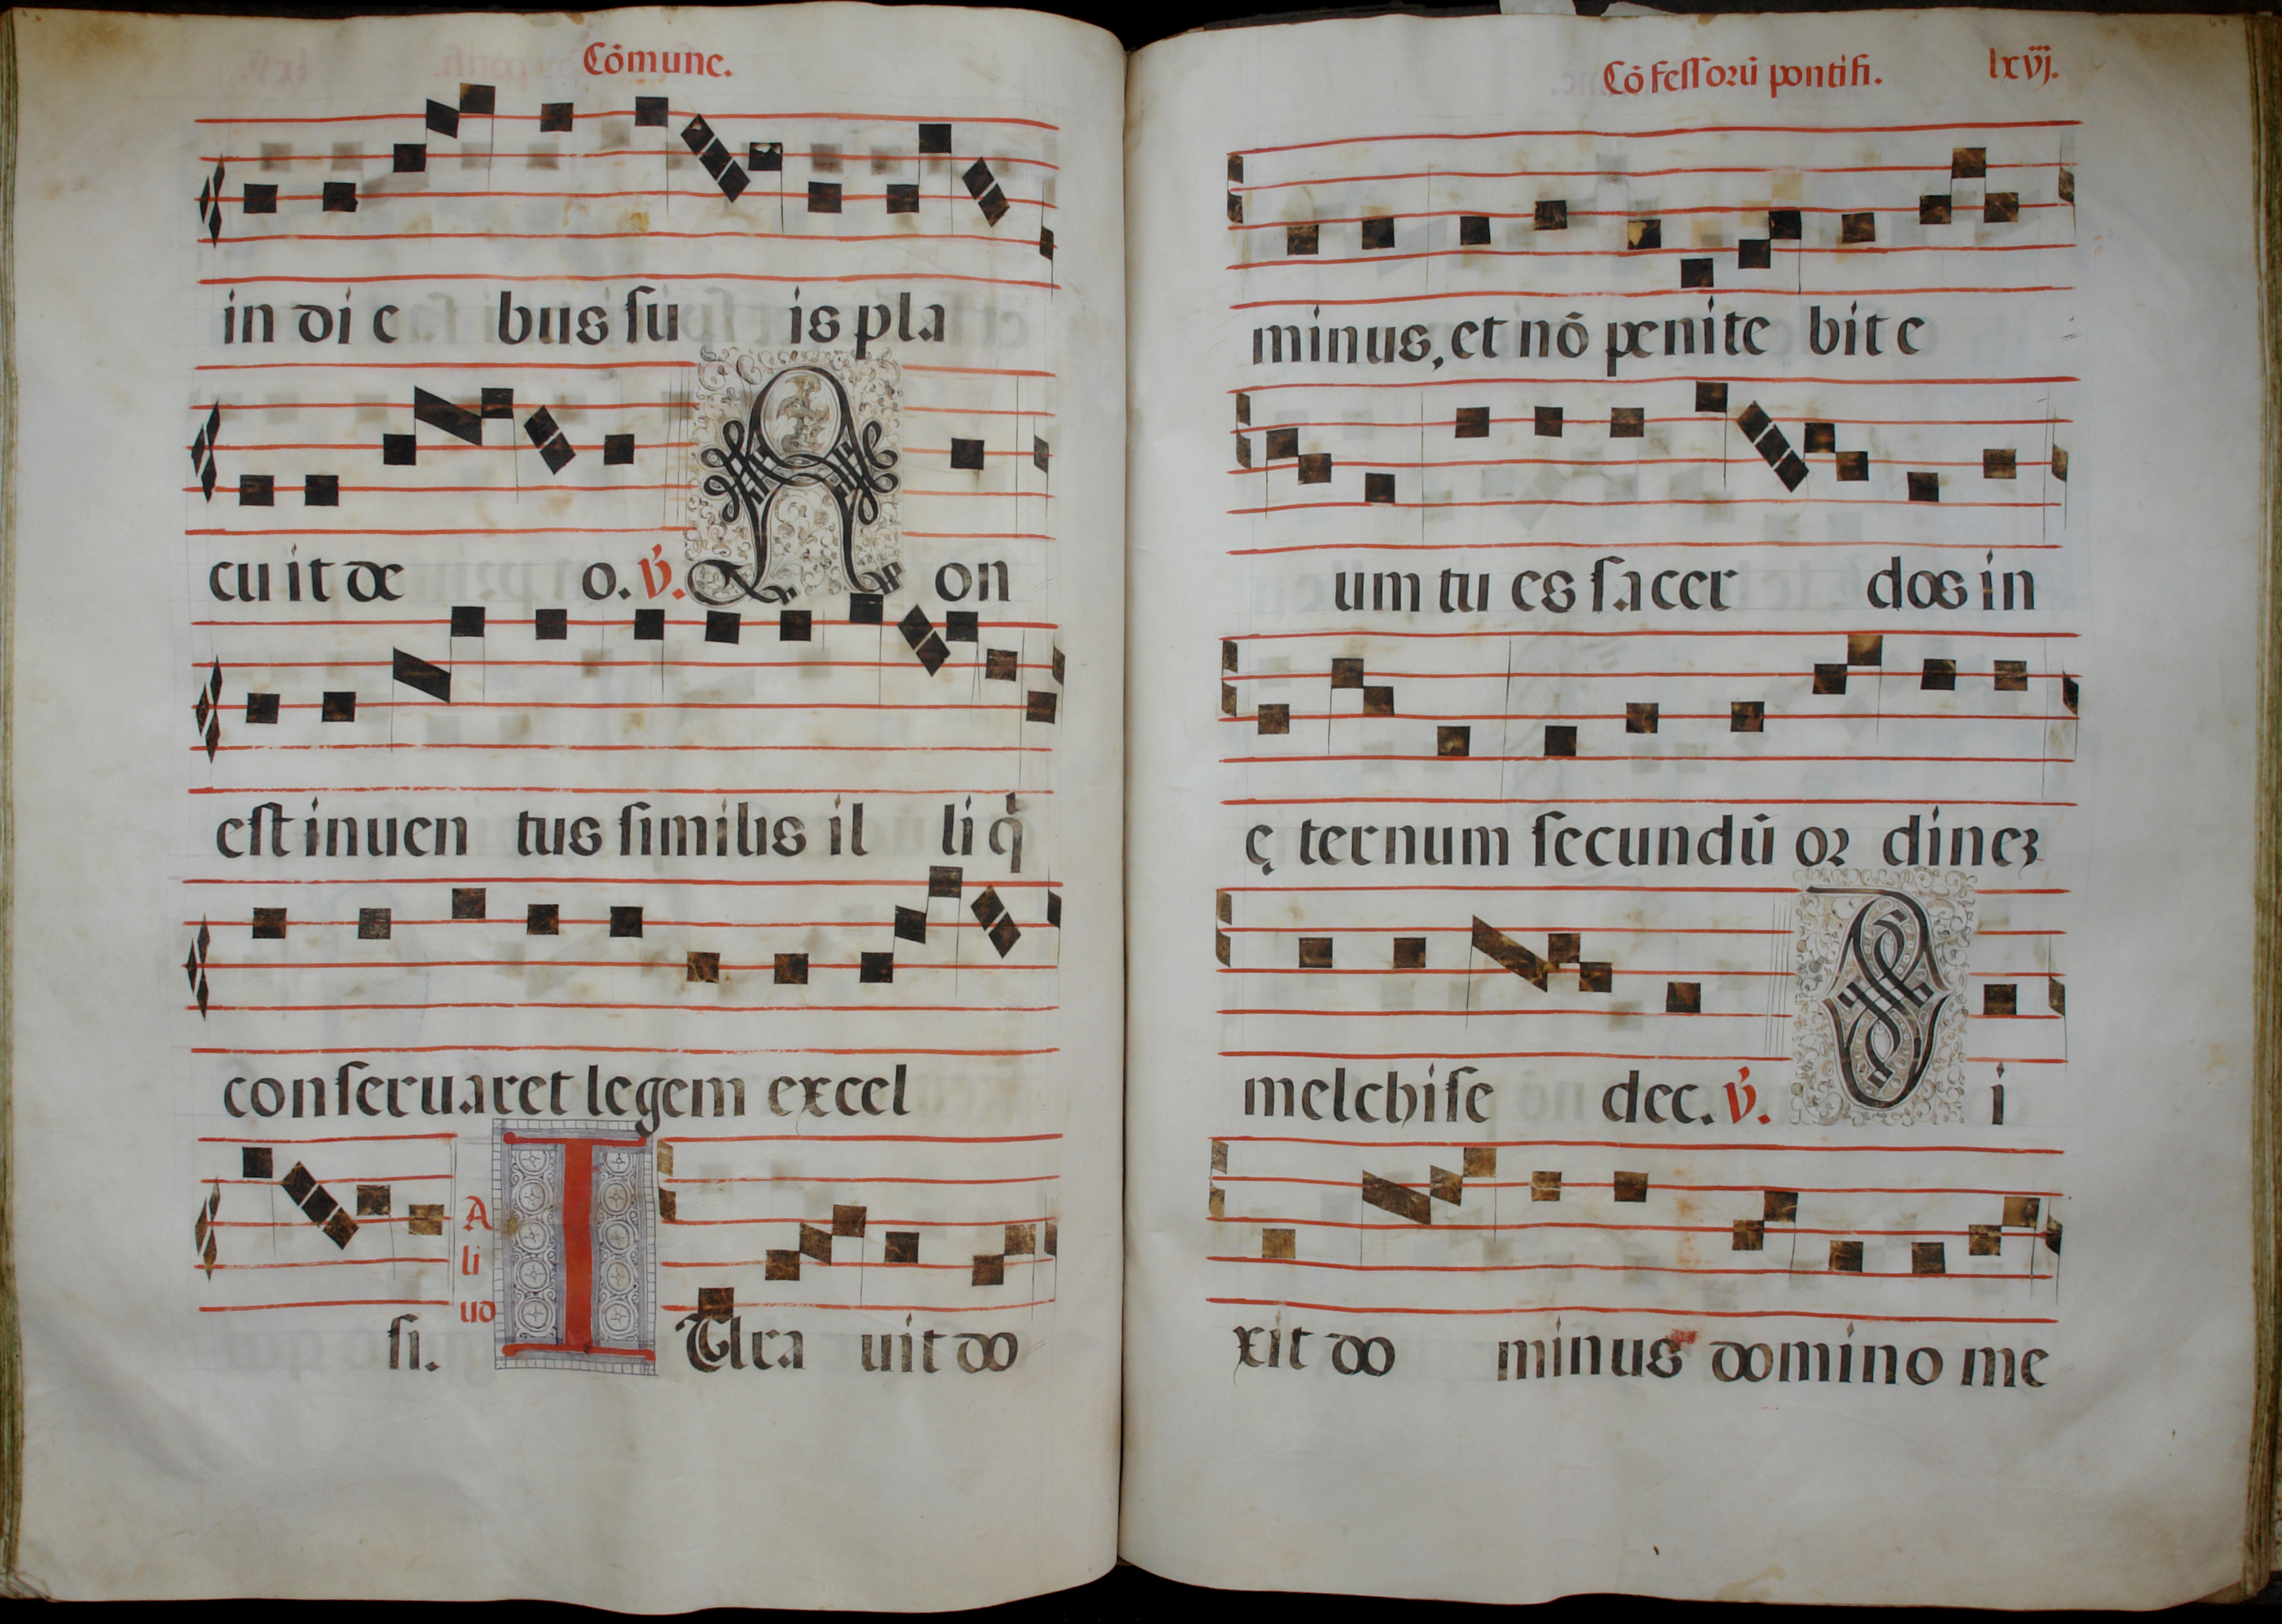 Cōmune.
in die bus su is pla
cuit deo. v̄. Non
est inuen tus similis il li q̄
conseruaret legem excel
si. Aliud IUra uit do
Cōfessorū pontifi. lxvj.
minus, et nō penite bit e
um tu es sacer dos in
ę ternum secundū or dinez
melchise dec. v̄. Di
xit do minus domino me